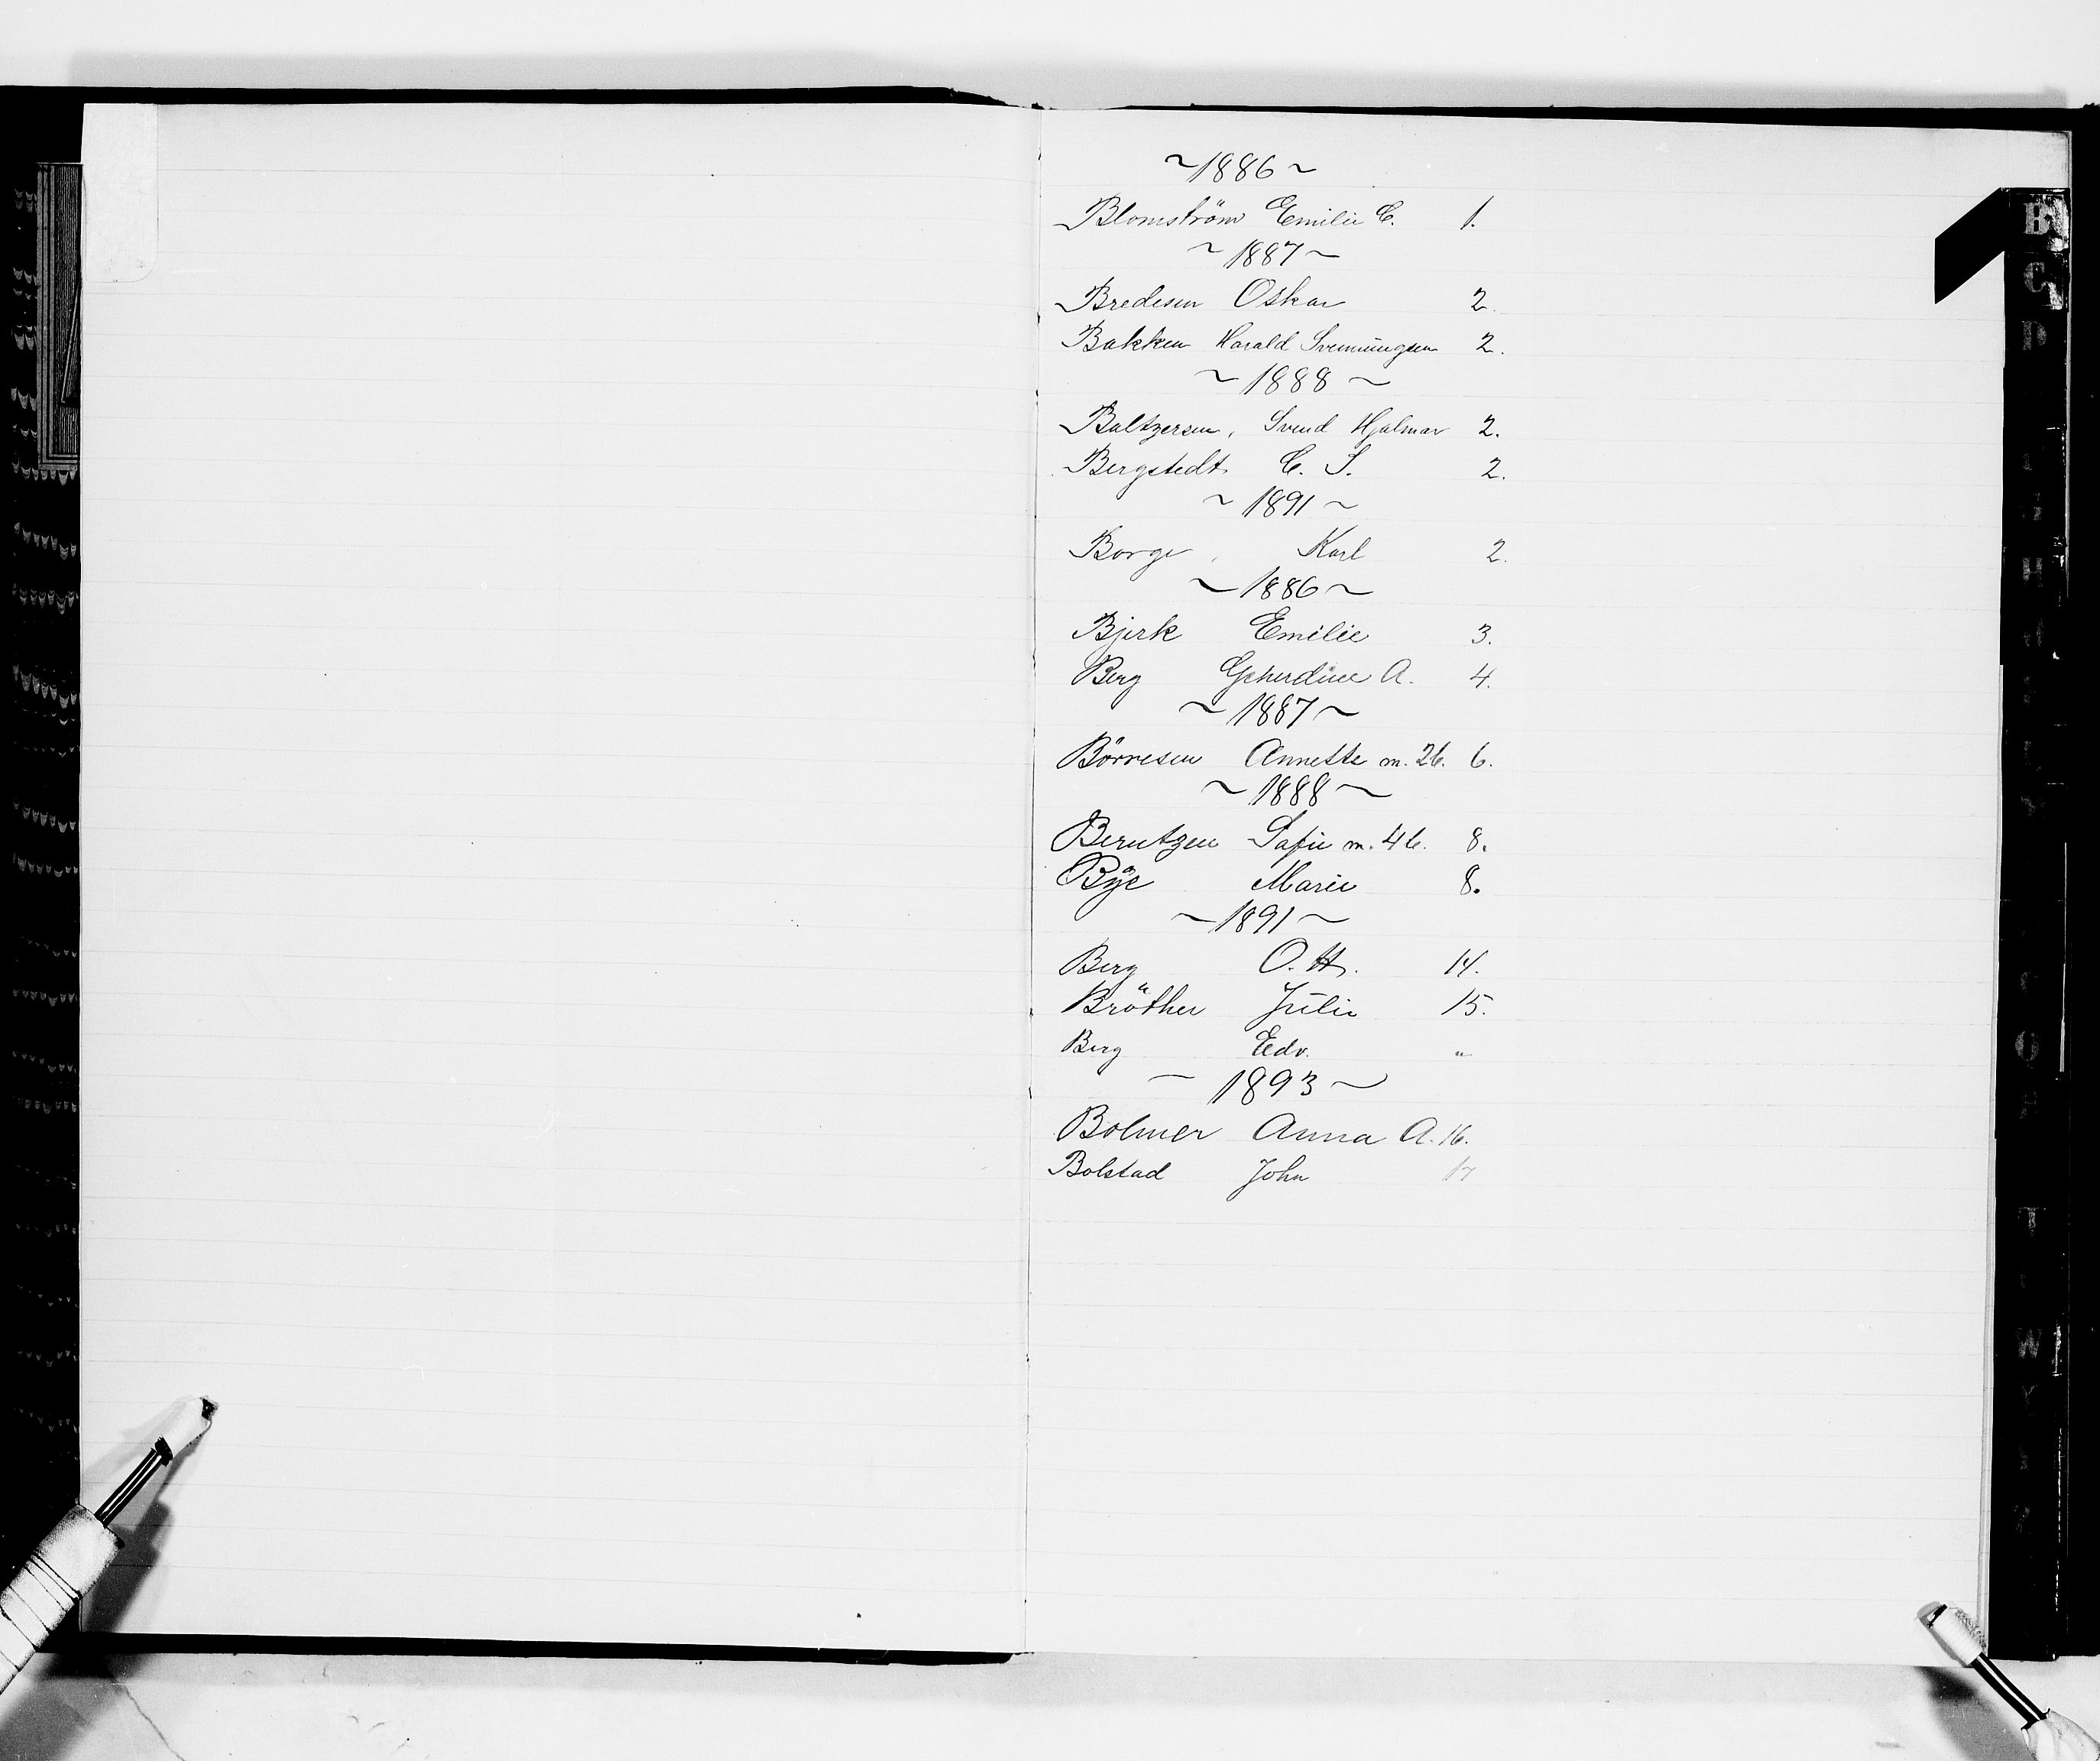 ~ 1886 ~
Blomström Emilie C. 1.
~ 1887 ~
Bredesen Oskar 2.
Bakken Harald Svennungsen 2.
~ 1888 ~
Baltzersen, Svend Hjalmar 2.
Bergstedt C. S. 2.
~ 1891 ~
Borge, Karl 2.
~ 1886 ~
Bjerk Emilie 3.
Berg A. 4.
~ 1887 ~
Börresen Annette m. 2b. 6.
~ 1888 ~
Berntzen Safie m. 4b. 8.
Bye Marie 8.
~ 1891 ~
Berg O. H. 14.
Bröther Julie 15.
Berg Edv. "
~ 1893 ~
Bolmer Anna A. 16.
Bolstad John 17
B
C
D
W